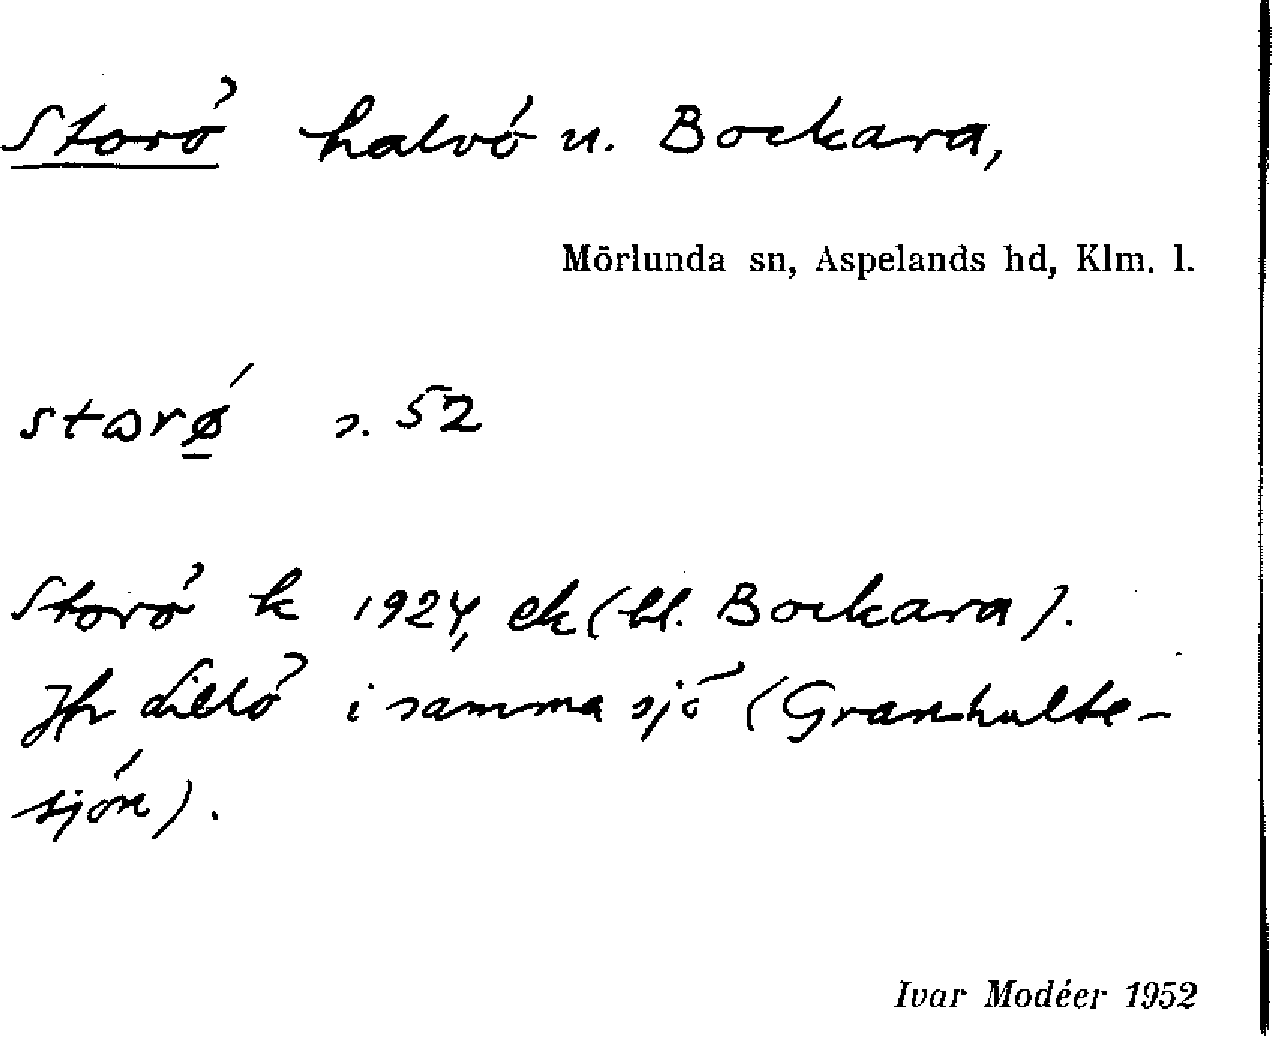 Storö halvö u. Bockara,
Mörlunda sn, Aspelands hd, Klm. l.
storǿ̱ s. 52
Storö k 1924, ek (bl. Bockara).
Jfr Lillö i samma sjö (Granhulte-
sjön).
Ivar Modéer 1952